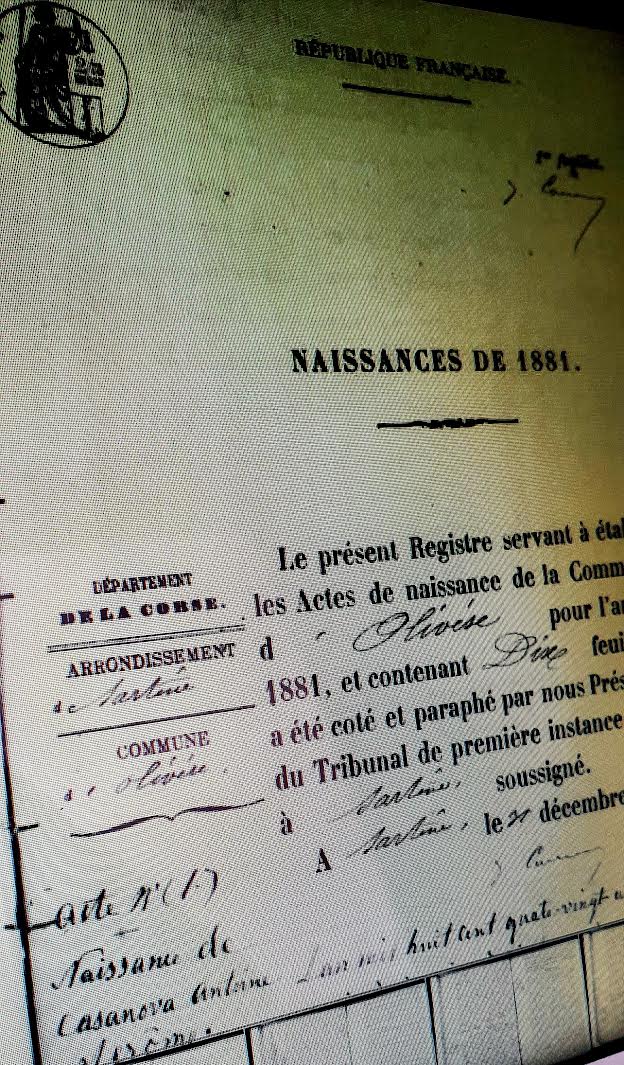 RÉPUBLIQUE FRANÇAISE.
NAISSANCES DE 1881.
DÉPARTEMENT
DE LA CORSE.
ARRONDISSEMENT
de Sartène
COMMUNE
d' Olivèse.
Le présent Registre servant à étal
les Actes de naissance de la Comm
d' Olivèse pour l'an
1881, et contenant Dix feui
a été coté et paraphé par nous Prés
du Tribunal de première instance
à Sartène, soussigné.
A Sartène, le décembre
Acte N° (1.)
Naissance de
Casanova Antoine L'an mil huit cent quatre-vingt u
Jérôme.